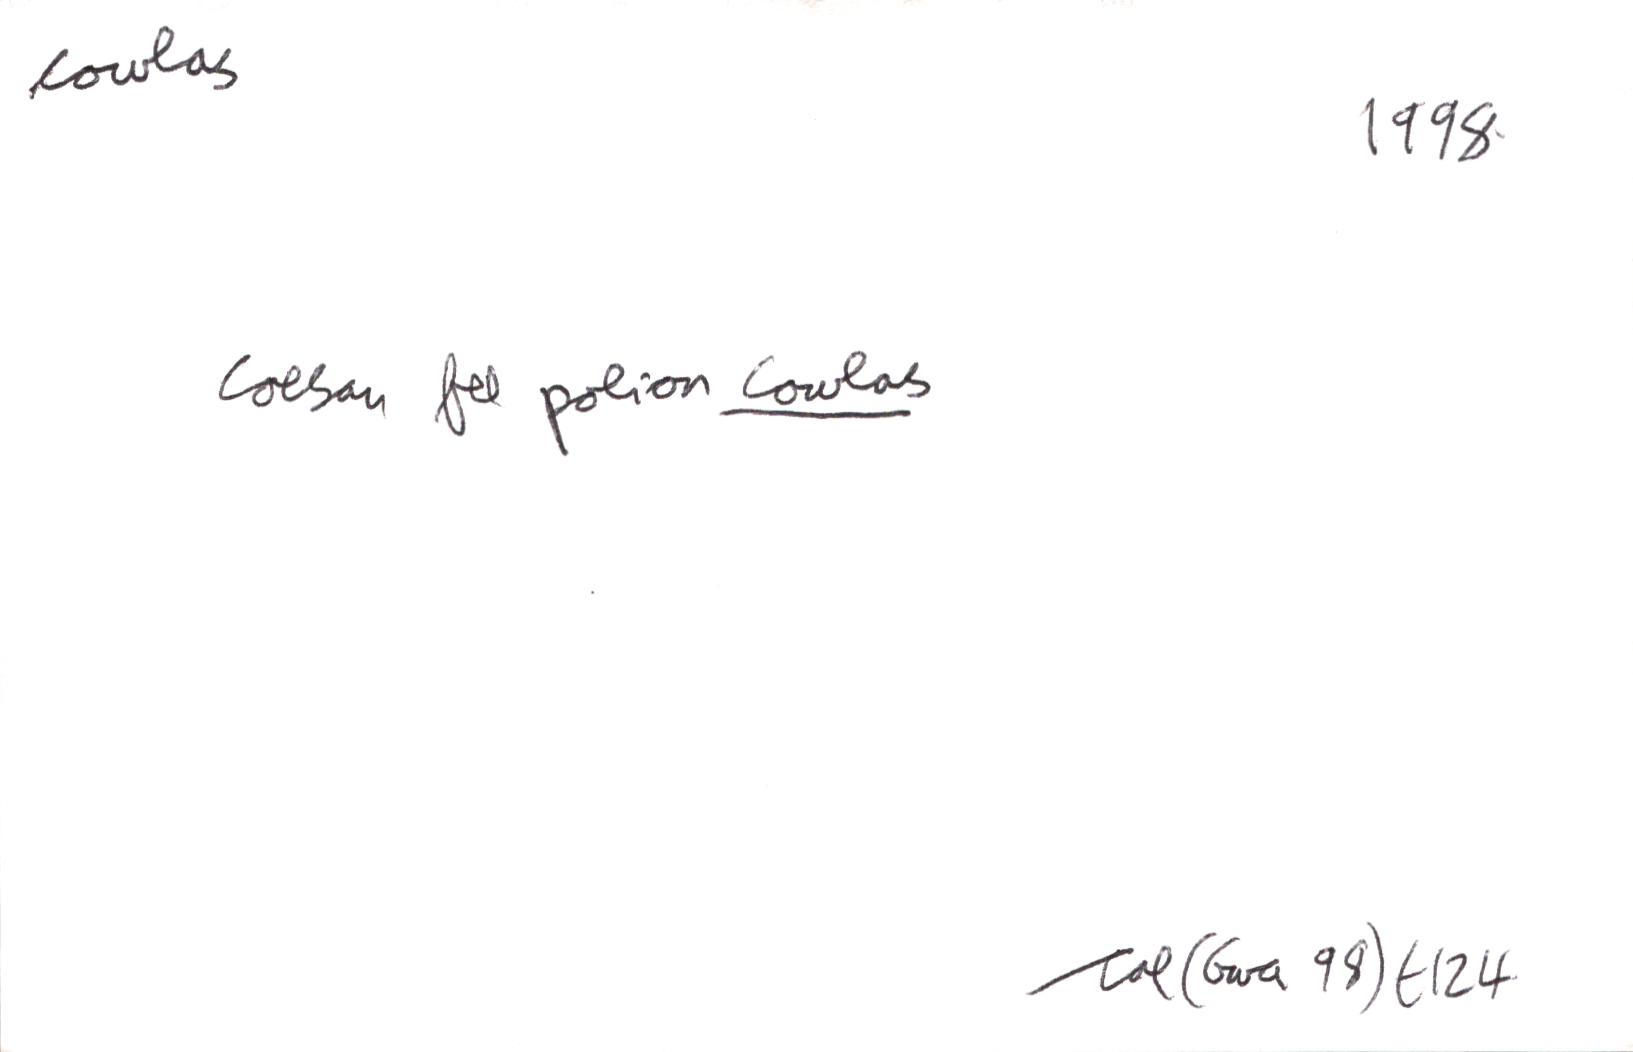 cowlas
1998.
Coesau fel polion Cowlas
Tal (Gwa 98) t124